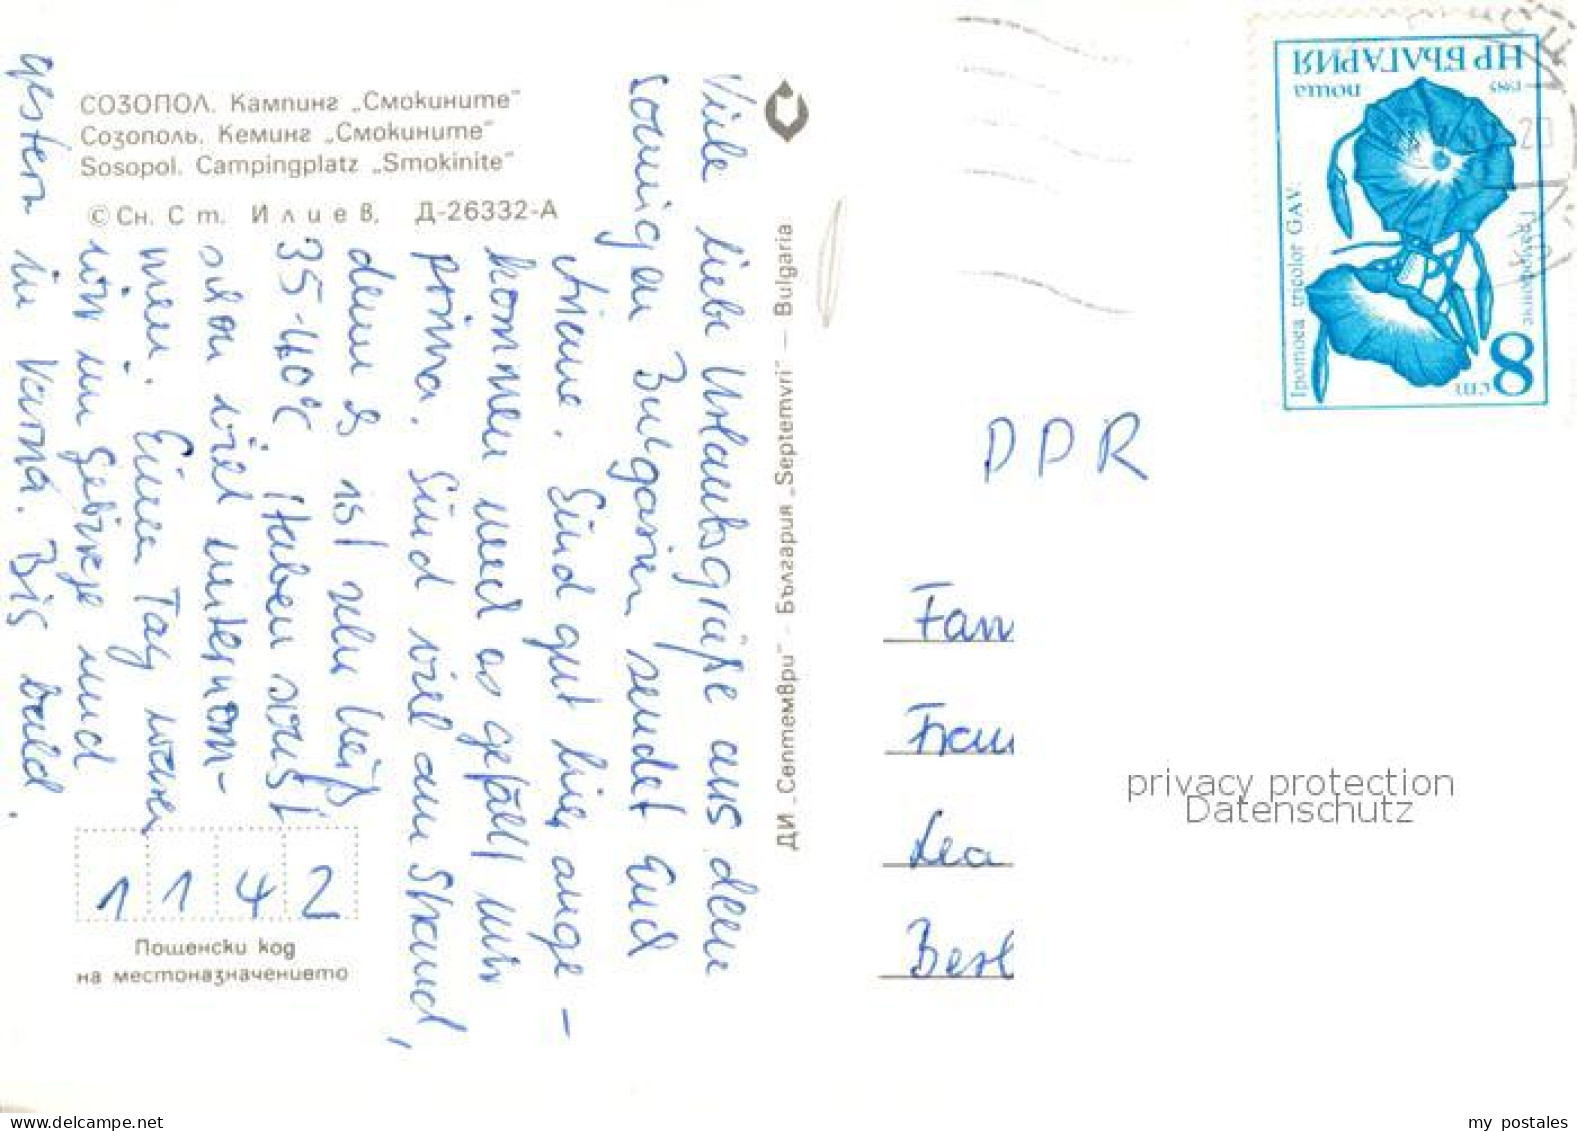 СОЗОПОЛ. Кампинг „Смокините“
Созополь. Кеминг „Смокините“
Sosopol. Campingplatz „Smokinite“
© Сн. Ст. Илиев. Д-26332-А
Viele liebe Urlaubsgrüße aus dem
sonnigen Bulgarien sendet Euch
Sind gut hier ange-
kommen und es gefällt mir
prima. Sind viel am Strand,
denn es ist sehr heiß
35-40°C. Haben sonst
schon viel unternom-
men. Einen Tag waren
wir im Gebirge und
gestern in Varna. Bis bald.
1142
Пощенски код
на местоназначението
ДИ „Септември“ - България „Septemvri“ — Bulgaria
НР БЪЛГАРИЯ
поща
1985
Ipomoea tricolor CAV.
Грамофонче
8
ст
20
DDR
Fam
Frau
Lea
Berl
privacy protection
Datenschutz
my postales
www.delcampe.net